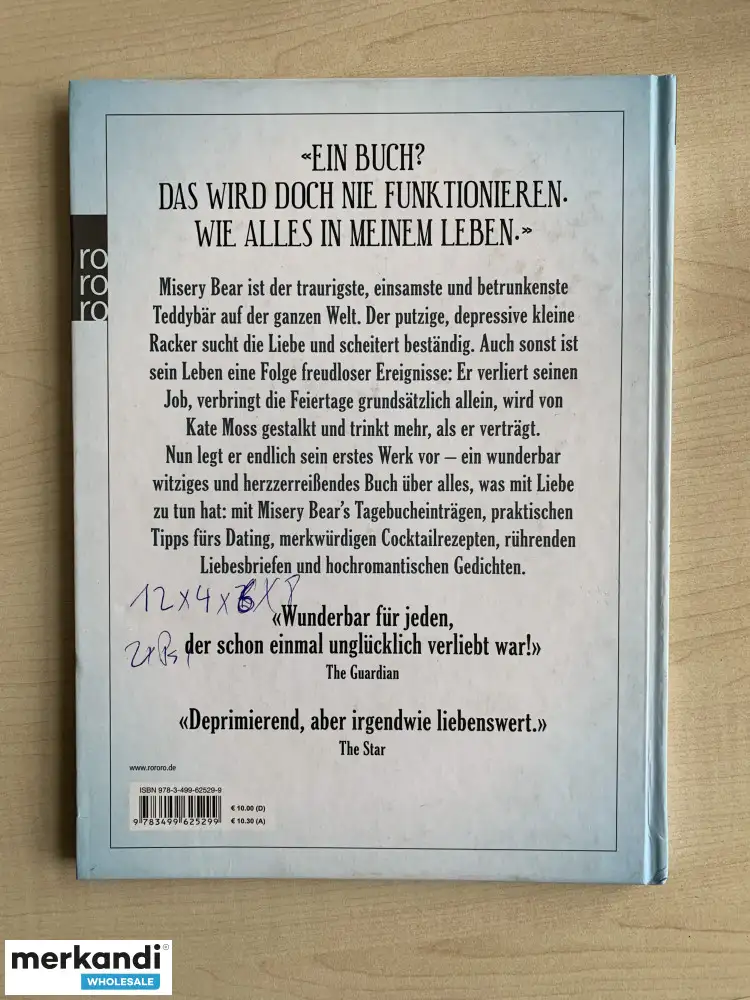 «EIN BUCH?
DAS WIRD DOCH NIE FUNKTIONIEREN.
WIE ALLES IN MEINEM LEBEN.»
ro
ro
ro
Misery Bear ist der traurigste, einsamste und betrunkenste
Teddybär auf der ganzen Welt. Der putzige, depressive kleine
Racker sucht die Liebe und scheitert beständig. Auch sonst ist
sein Leben eine Folge freudloser Ereignisse: Er verliert seinen
Job, verbringt die Feiertage grundsätzlich allein, wird von
Kate Moss gestalkt und trinkt mehr, als er verträgt.
Nun legt er endlich sein erstes Werk vor – ein wunderbar
witziges und herzzerreißendes Buch über alles, was mit Liebe
zu tun hat: mit Misery Bear's Tagebucheinträgen, praktischen
Tipps fürs Dating, merkwürdigen Cocktailrezepten, rührenden
Liebesbriefen und hochromantischen Gedichten.
12x4x6x8
«Wunderbar für jeden,
der schon einmal unglücklich verliebt war!»
The Guardian
«Deprimierend, aber irgendwie liebenswert.»
The Star
www.rororo.de
ISBN 978-3-499-62529-9
€ 10.00 (D)
€ 10.30 (A)
9 783499 625299
merkandi®
WHOLESALE